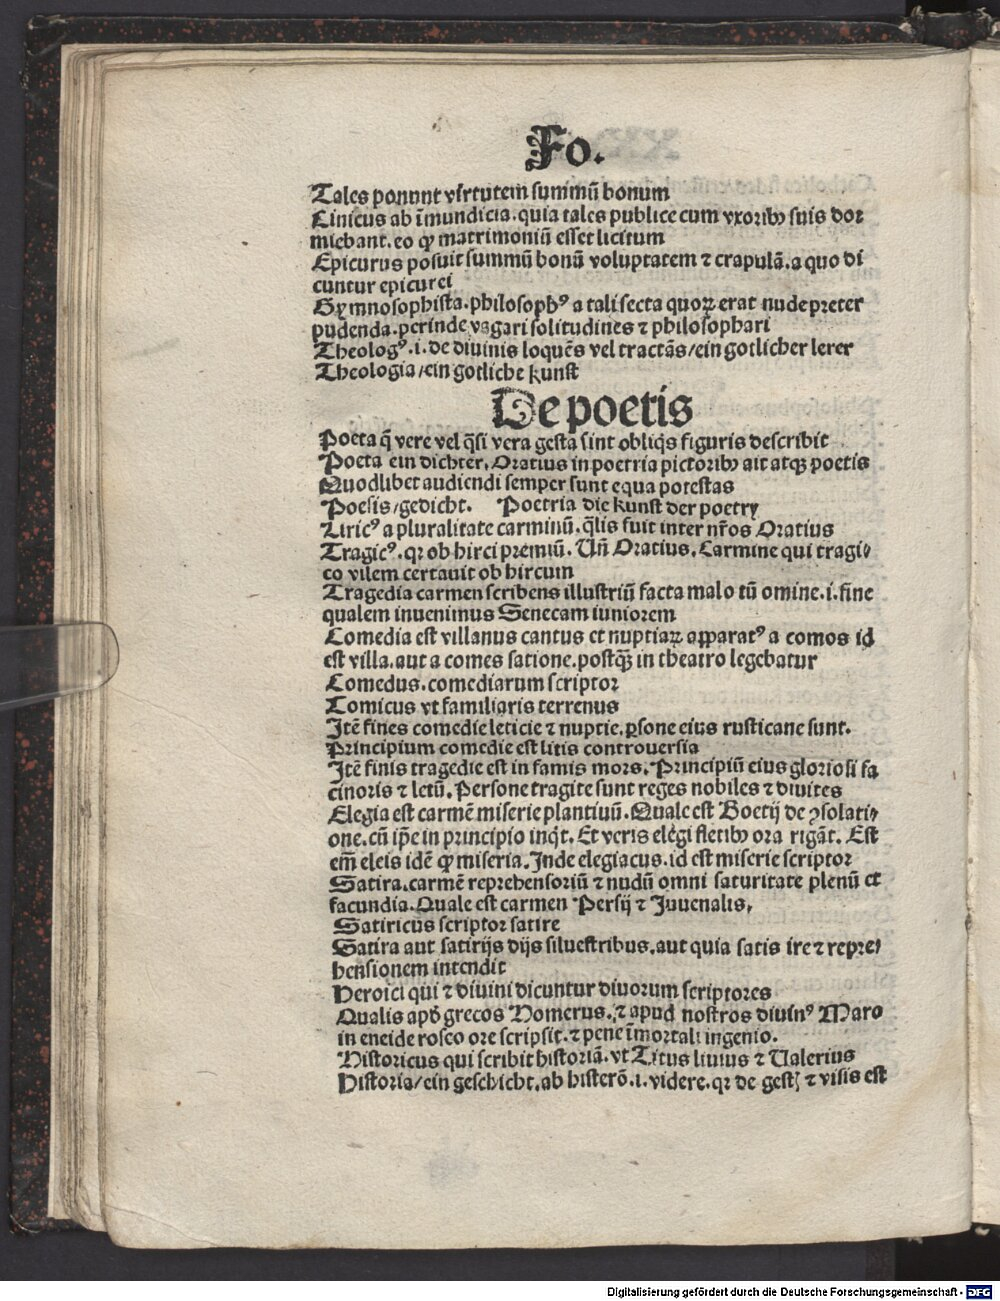 Fo.
Tales ponunt virtutem summũ bonum
Cinicus ab ĩmundicia. quia tales publice cum vxoribꝰ suis dor
miebant. eo ꝙ matrimoniũ esset licitum
Epicurus posuit summũ bonũ voluptatem ⁊ crapulã. a quo di
cuntur epicurei
Gymnosophista. philosophꝰ a tali secta quoꝝ erat nude preter
pudenda. perinde vagari solitudines ⁊ philosophari
Theologꝰ .i. de diuinis loquẽs vel tractãs / ein gotlicher lerer
Theologia / ein gotliche kunst
De poetis
Poeta q̃ vere vel q̃si vera gesta sint obliq̃s figuris describit
Poeta ein dichter. Oratius in poetria pictoribꝰ ait atqꝫ poetis
Quodlibet audiendi semper sunt equa potestas
Poesis / gedicht. Poetria die kunst der poetry
Liricꝰ a pluralitate carminũ. q̃lis fuit inter nr̃os Oratius
Tragicꝰ. qꝛ ob hirci premiũ. Uñ Oratius. Carmine qui tragi⸗
co vilem certauit ob hircum
Tragedia carmen scribens illustriũ facta malo tñ omine .i. fine
qualem inuenimus Senecam iuniorem
Comedia est villanus cantus et nuptiaꝝ apparatꝰ a comos id
est villa. aut a comes satione. postq̃ꝫ in theatro legebatur
Comedus. comediarum scriptor
Comicus vt familiaris terrenus
Itẽ fines comedie leticie ⁊ nuptie. ꝑsone eius rusticane sunt.
Principium comedie est litis controuersia
Itẽ finis tragedie est in famis mors. Principiũ eius gloriosi fa
cinoris ⁊ letũ. Persone tragite sunt reges nobiles ⁊ diuites
Elegia est carmẽ miserie plantiuũ. Quale est Boetij de ꝯsolati⸗
one. cũ ip̃e in principio inqͥt. Et veris elegi fletibꝰ ora rigãt. Est
em̃ eleis idẽ ꝙ miseria. Inde elegiacus. id est miserie scriptor
Satira. carmẽ reprehensoriũ ⁊ nudũ omni saturitate plenũ et
facundia. Quale est carmen Persij ⁊ Juuenalis.
Satiricus scriptor satire
Satira aut satirijs dijs siluestribus. aut quia satis ire ⁊ repre⸗
hensionem intendit
Heroici qui ⁊ diuini dicuntur diuorum scriptores
Qualis apd̕ grecos Homerus. ⁊ apud nostros diuinꝰ Maro
in eneide roseo ore scripsit. ⁊ pene ĩmortali ingenio.
Historicus qui scribit historiã. vt Titus liuius ⁊ Ualerius
Historia / ein geschicht. ab histerõ .i. videre. qꝛ de gestꝭ ⁊ visis est
Digitalisierung gefördert durch die Deutsche Forschungsgemeinschaft - DFG